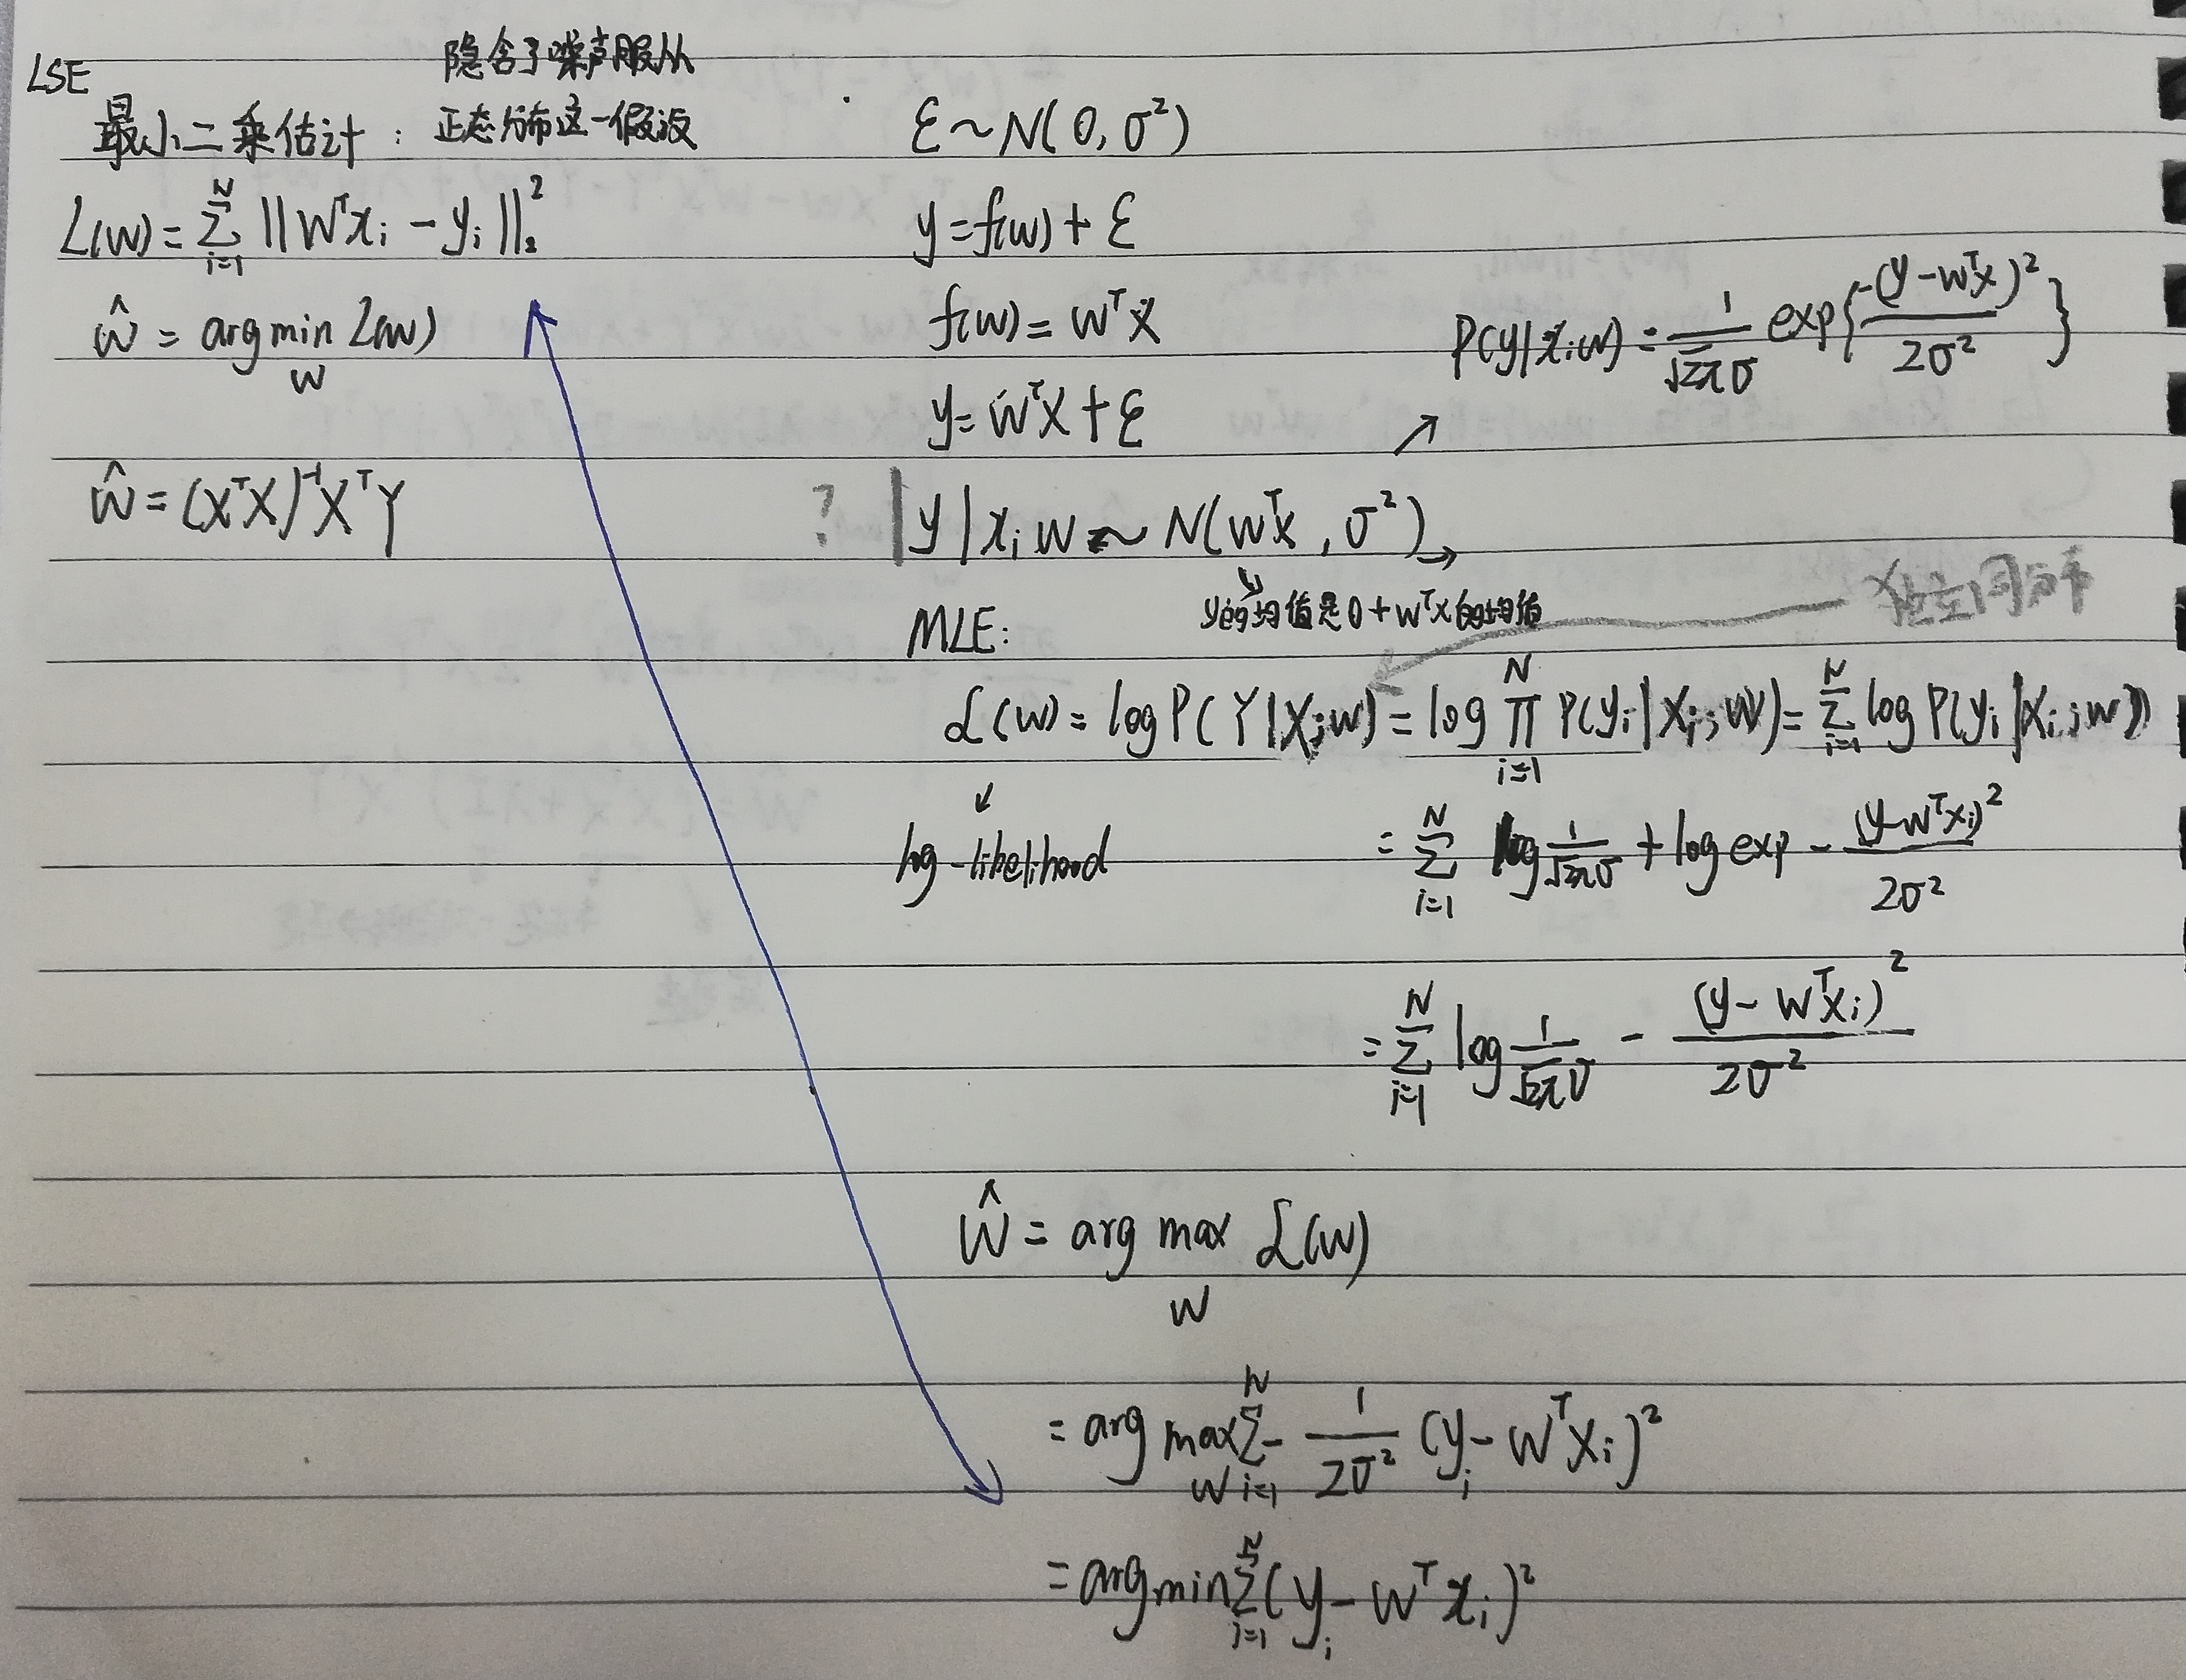 LSE
隐含了噪声服从
最小二乘估计：
正态分布这一假设
L(w) = \sum_{i=1}^{N} ||W^T x_i - y_i||_2^2
\hat{w} = arg min_w L(w)
\hat{w} = (X^T X)^{-1} X^T Y
ε ~ N(0, σ^2)
y = f(w) + ε
f(w) = w^T x
y = w^T x + ε
P(y|x;w) = \frac{1}{\sqrt{2π}σ} exp{\frac{-(y-w^T x)^2}{2σ^2}}
? | y | x; w ~ N(w^T x, σ^2) →
y的均值是0+w^T x的均值
独立同分布
MLE:
ℒ(w) = log P(Y|X;w) = log \prod_{i=1}^{N} P(y_i|x_i;w) = \sum_{i=1}^{N} log P(y_i|x_i;w))
log-likelihood
= \sum_{i=1}^{N} log \frac{1}{\sqrt{2π}σ} + log exp - \frac{(y-w^T x_i)^2}{2σ^2}
= \sum_{i=1}^{N} log \frac{1}{\sqrt{2π}σ} - \frac{(y-w^T x_i)^2}{2σ^2}
\hat{w} = arg max_w ℒ(w)
= arg max_w \sum_{i=1}^{N} - \frac{1}{2σ^2} (y_i - w^T x_i)^2
= arg min \sum_{i=1}^{N} (y_i - w^T x_i)^2